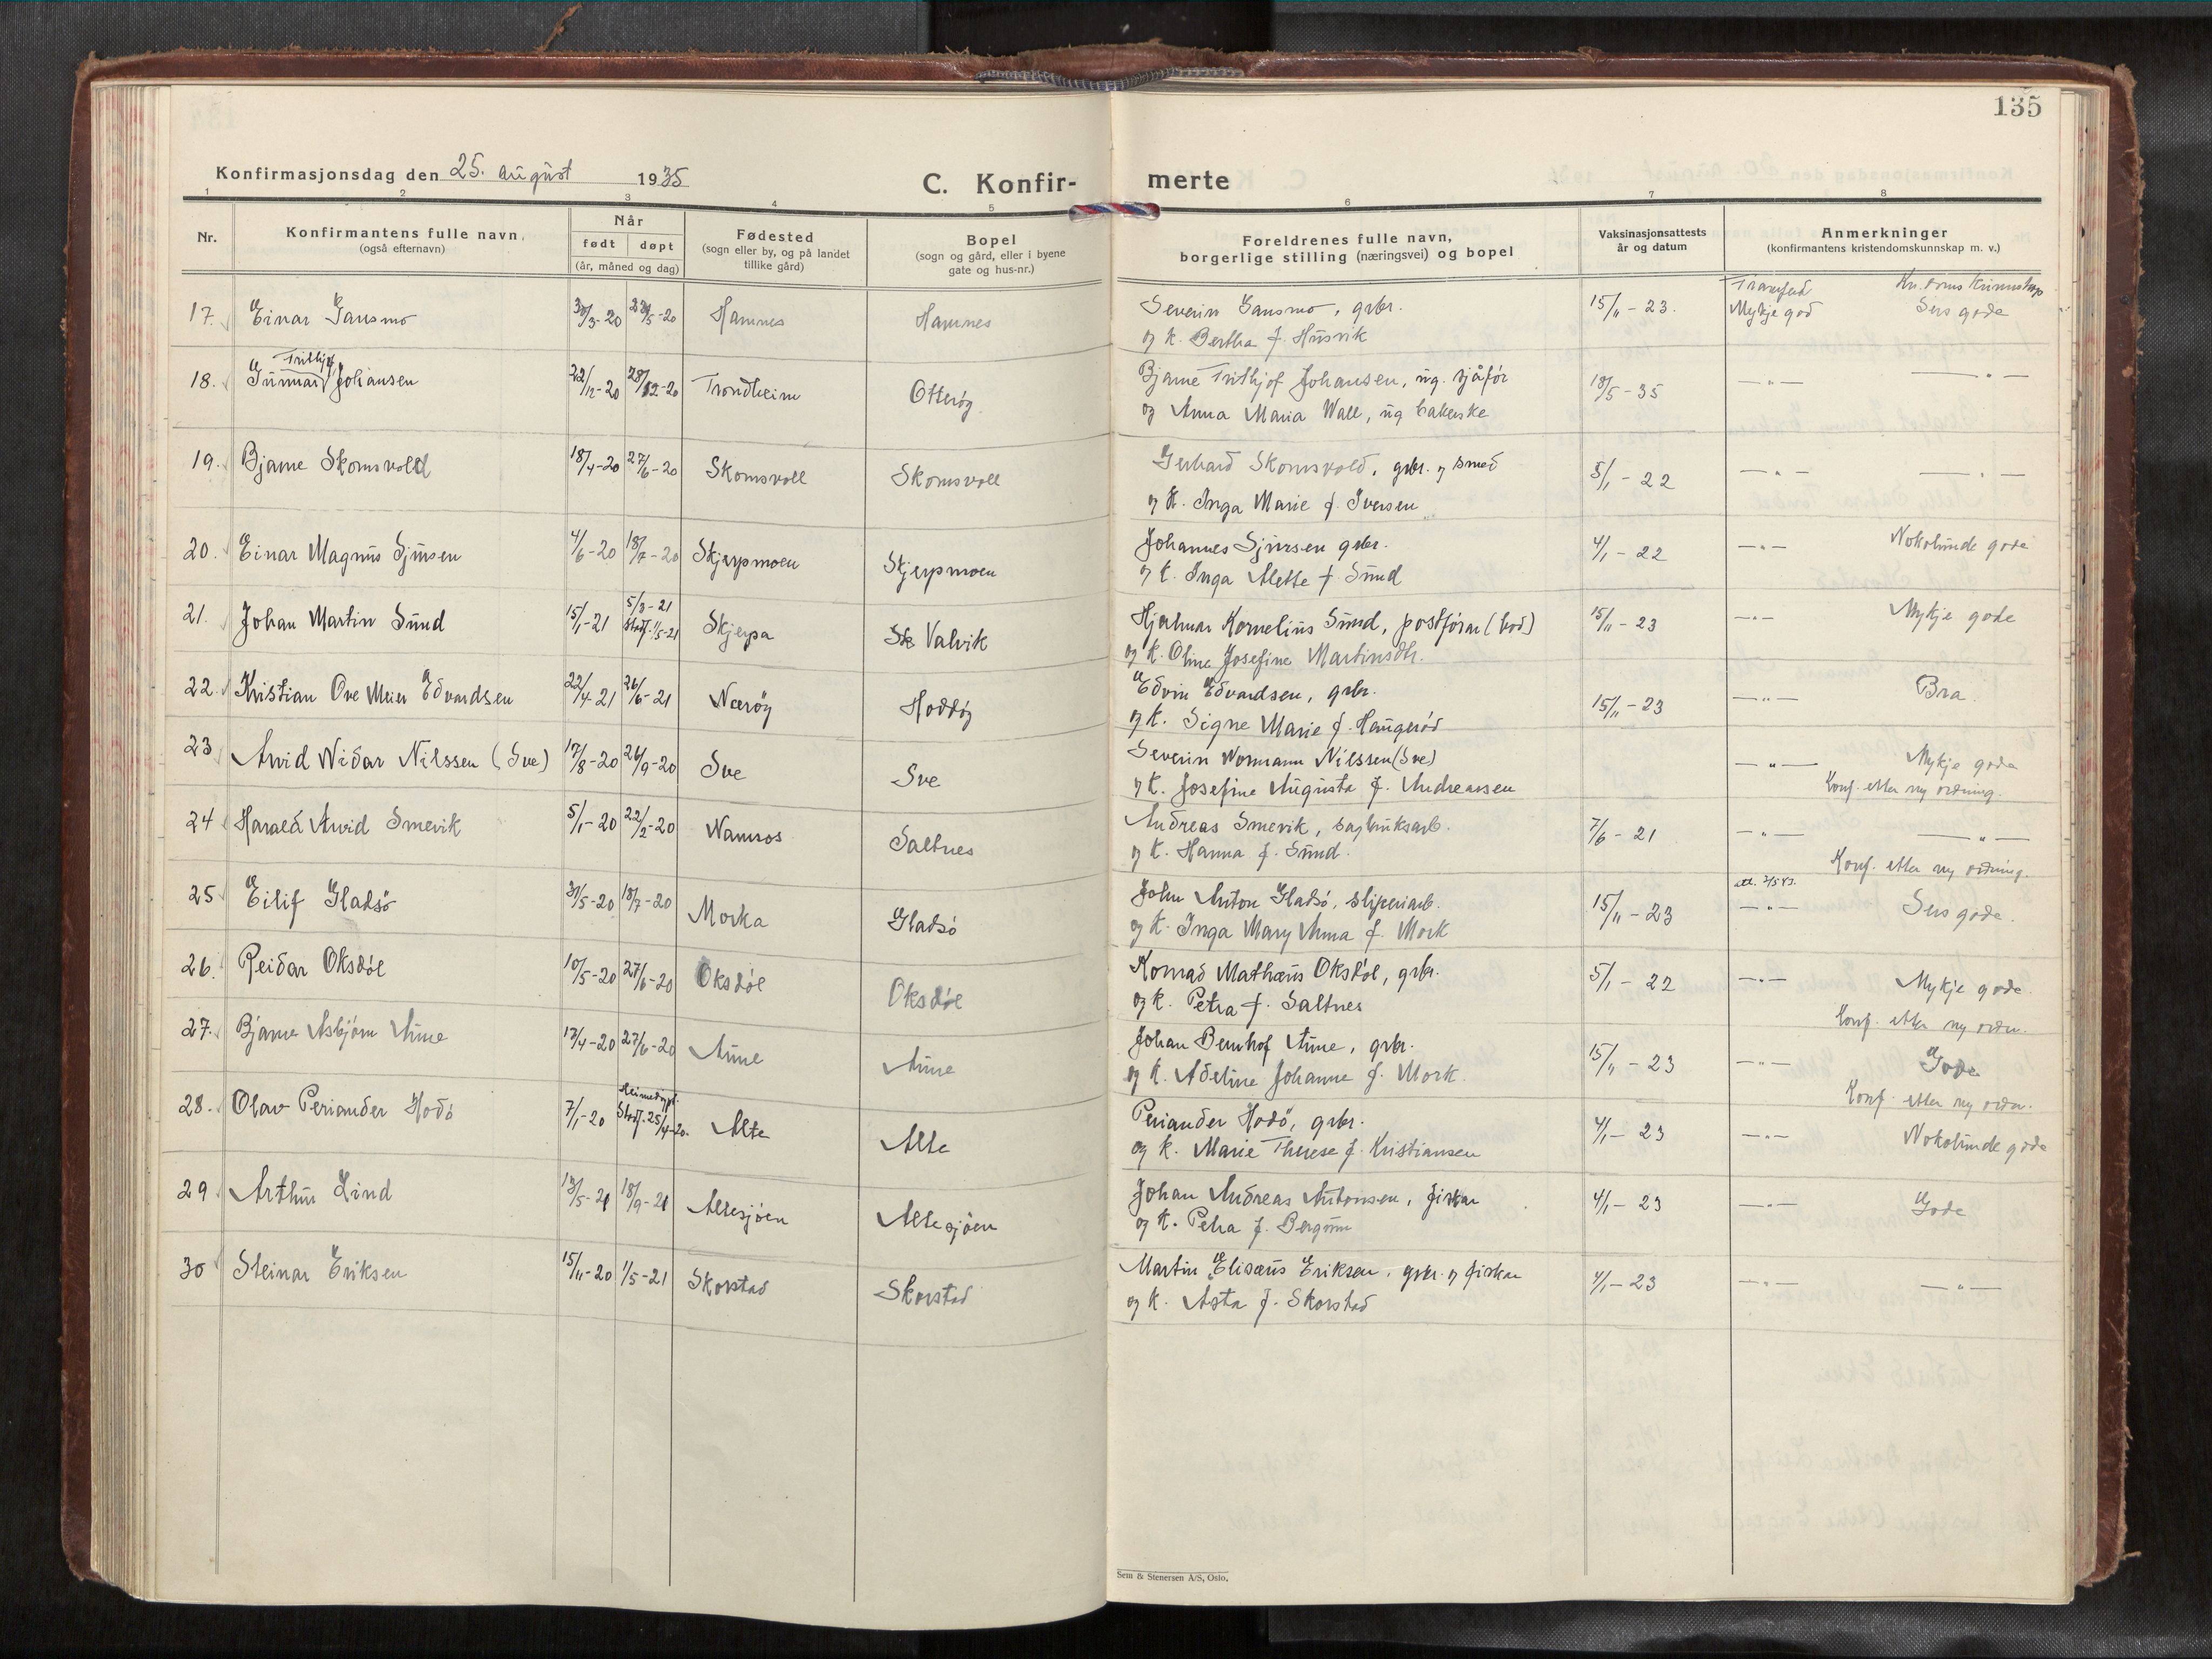 135
Konfirmasjonsdag den 25. august 1935
C. Konfir- merte
1 2 3 4 5 6 7 8
Nr.
Konfirmantens fulle navn,
(også efternavn)
Når
født døpt
(år, måned og dag)
Fødested
(sogn eller by, og på landet
tillike gård)
Bopel
(sogn og gård, eller i byene
gate og hus-nr.)
Foreldrenes fulle navn,
borgerlige stilling (næringsvei) og bopel
Vaksinasjonsattests
år og datum
Anmerkninger
(konfirmantens kristendomskunnskap m. v.)
17. Einar Gansmo 30/3-20 23/5-20 Hamnes Hamnes Severin Gansmo, grbr. 15/11-23. Mykje god Sers gode
og k. Bertha f. Husvik
Trithjof
18. Gunnar Johansen 22/12-20 28/12-20 Trondheim Otterøy Bjarne Trithjof Johansen, ug. sjåfør 18/5-35 —"— —"—
og Anna Maria Wall, ug bakerske
19. Bjarne Skomsvold 18/4-20 27/6-20 Skomsvoll Skomsvoll Gerhard Skomsvold, grbr. og smed 5/1-22 —"— —"—
og k. Inga Marie f. Iversen
20. Einar Magnus Sjursen 4/6-20 18/7-20 Skjerpmoen Skjerpmoen Johannes Sjursen grbr. 4/1-22 —"— Nokolunde gode
og k. Inga Alette f. Sund
21. Johan Martin Sund 15/1-21 5/3-21 Skjerpa Valvik Hjalmar Kornelius Sund, postfører (bod) 15/11-23 —"— Mykje gode
Stadf. 1/5-21 og k. Oline Josefine Martinsdtr.
22. Kristian Ove Meier Edvardsen 22/4-21 26/6-21 Nærøy Hoddøy Edvin Edvardsen, grbr. 15/11-23 —"— Bra
og k. Signe Marie f. Haugerød
23 Arvid Nidar Nilssen (Sve) 17/8-20 26/9-20 Sve Sve Severin Normann Nilssen (Sve) —"— Mykje gode
og k. Josefine Augusta f. Andreassen Konf. etter ny ordning.
24 Harald Arvid Smevik 5/1-20 22/2-20 Namsos Saltnes Andreas Smevik, sagbruksarb. 7/6-21 —"— —"—
og k. Hanna f. Sund. Konf. etter ny ordning.
25 Eilif Gladsö 31/5-20 18/7-20 Morka Gladsö John Anton Gladsö, sliperiarb. 15/11-23 —"— Sers gode.
og k. Inga Mary Anna f. Mork
26. Reidar Oksdöl 10/5-20 27/6-20 Oksdöl Oksdöl Konrad Mathæus Oksdöl, grbr. 5/1-22 —"— Mykje gode
og k. Petra f. Saltnes Konf. etter ny ordn.
27. Bjarne Asbjörn Aune 13/4-20 27/6-20 Aune Aune Johan Bernhof Aune, grbr. 15/11-23 —"— Gode
og k. Adeline Johanne f. Mork Konf. etter ny ordn.
28. Olav Periander Hodö 7/1-20 Heimedøpt. Stadf. 25/4-20. Alte Alte Periander Hodö, grbr. 4/1-23 —"— Nokolunde gode
og k. Marie Therese f. Kristiansen
29 Arthur Lind 13/5-21 18/9-21 Altesjöen Altesjöen Johan Andreas Antonsen, fiskar 4/1-23 —"— Gode
og k. Petra f. Bergum
30 Steinar Eriksen 15/11-20 1/5-21 Skorstad Skorstad Martin Elisæus Eriksen, grbr. og fiskar 4/1-23 —"— —"—
og k. Asta f. Skorstad
Sem & Stenersen A/S, Oslo.